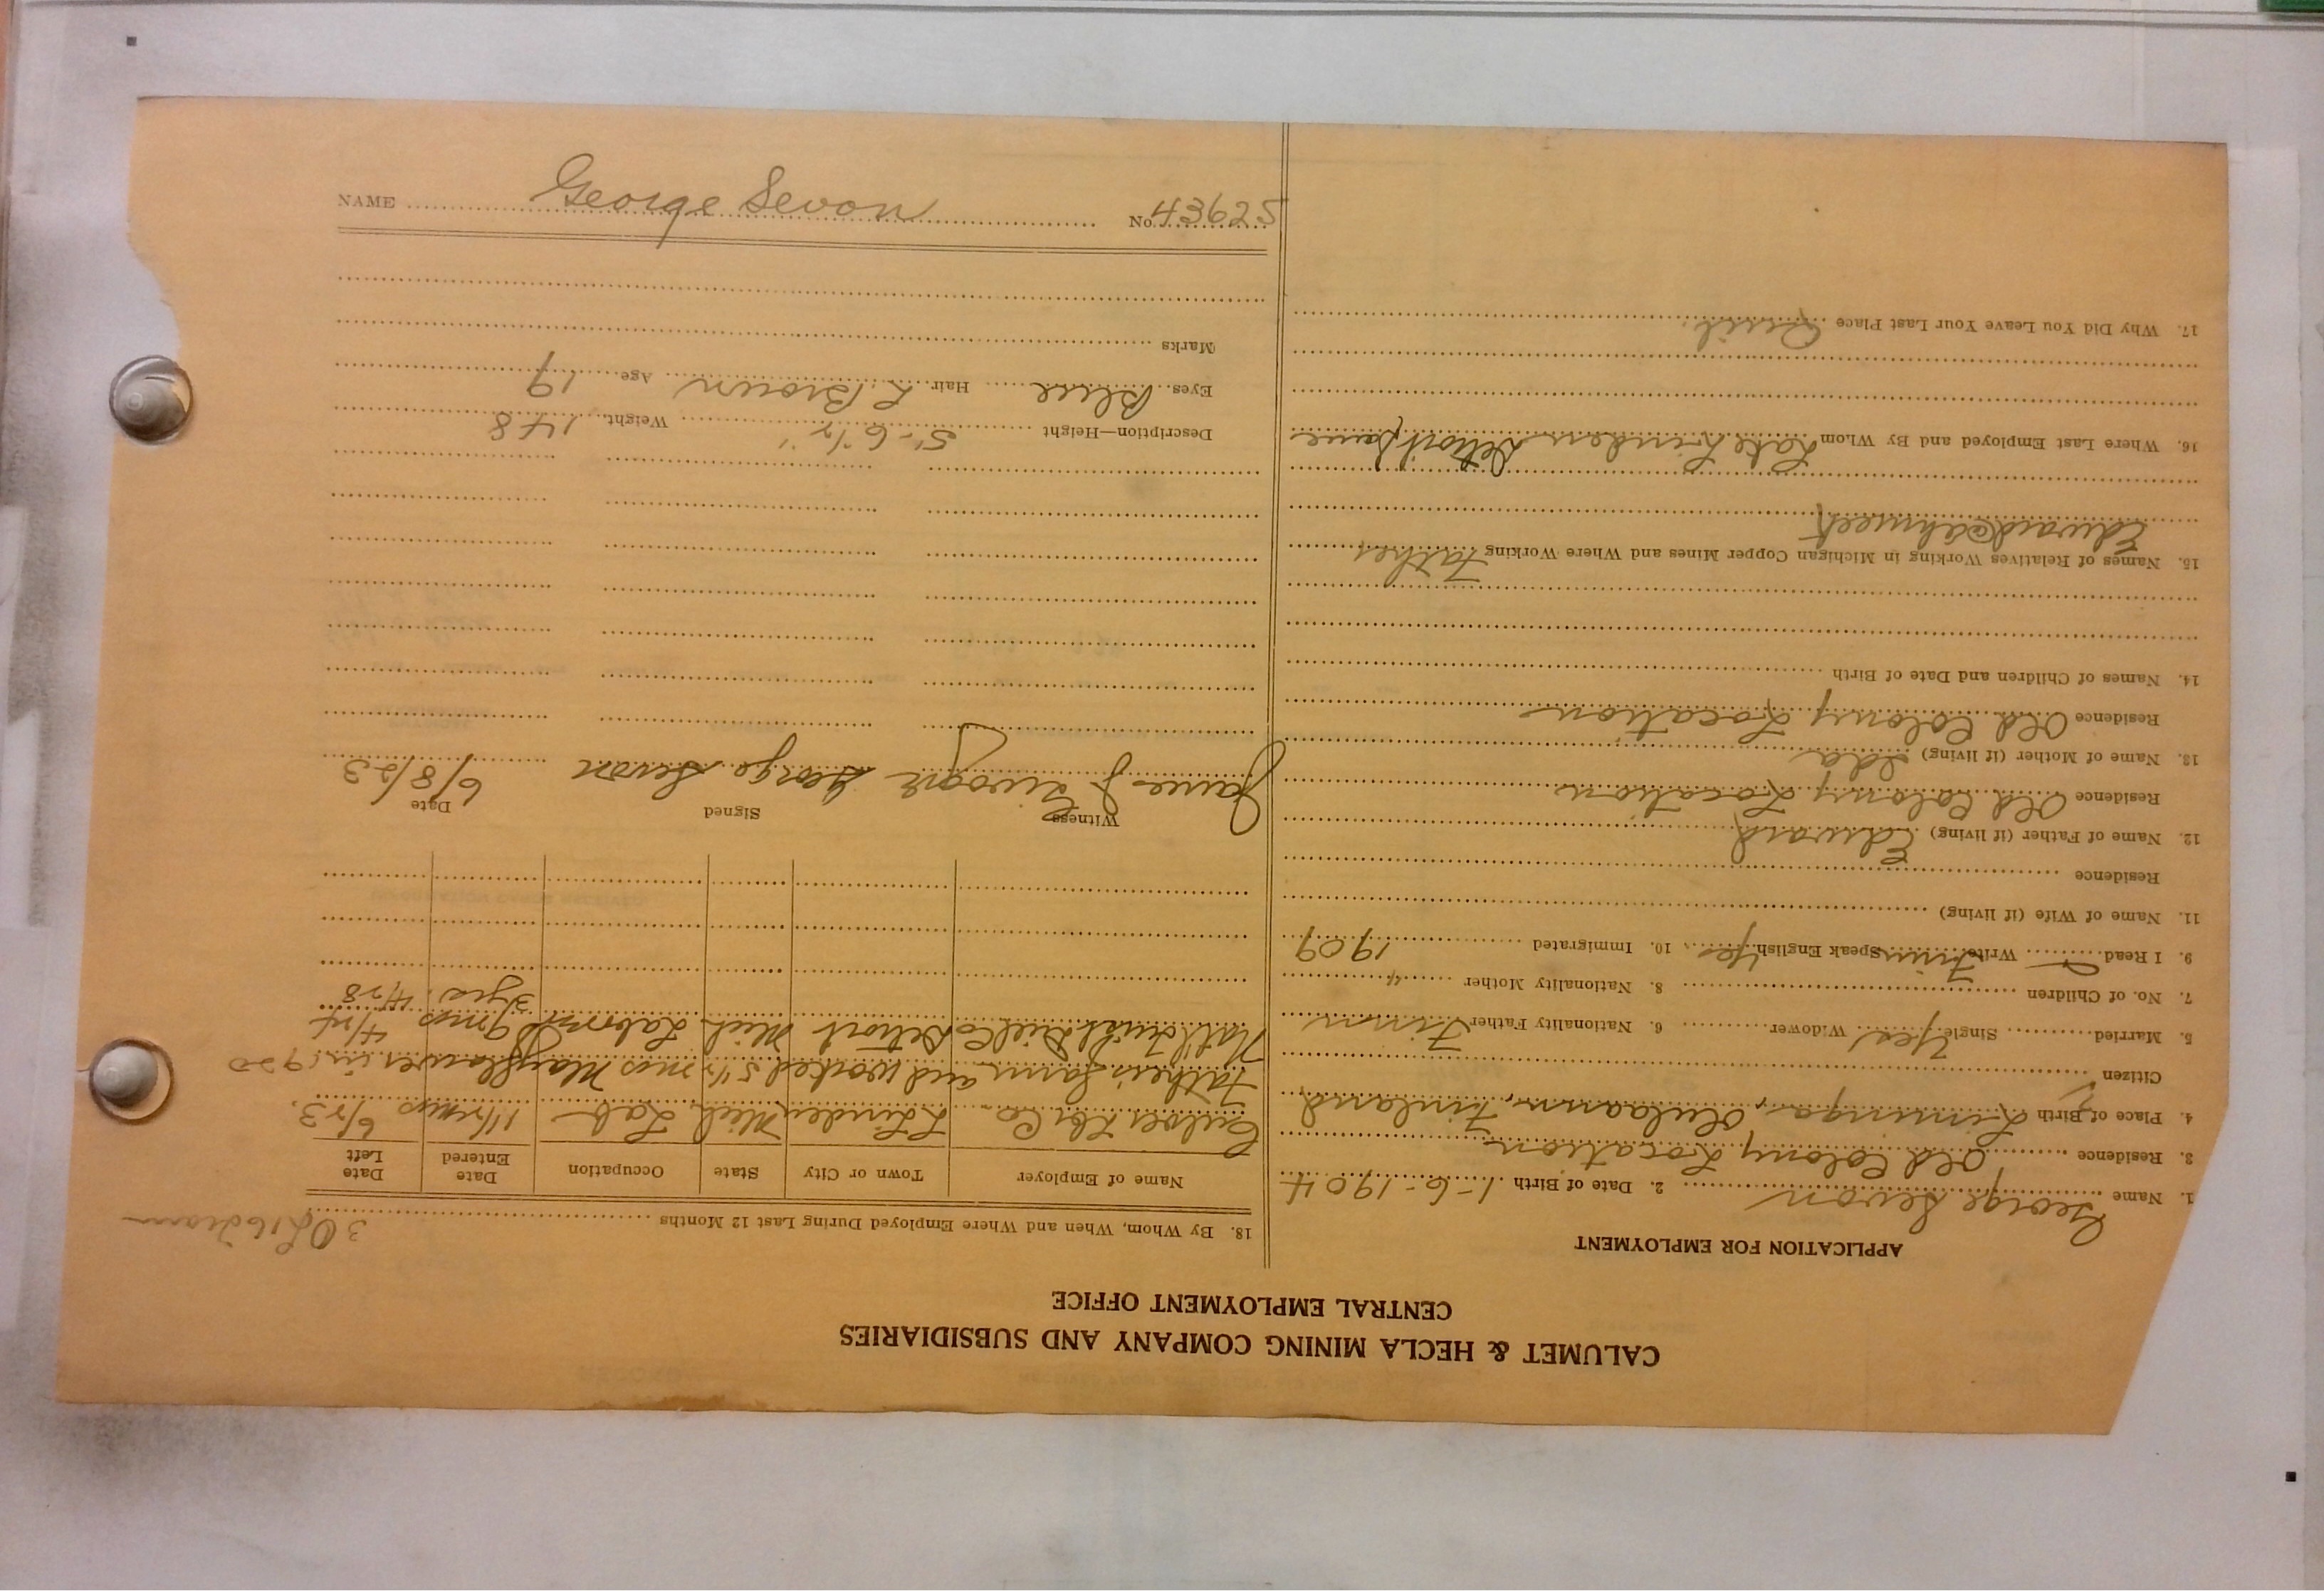 CALUMET & HECLA MINING COMPANY AND SUBSIDIARIES
CENTRAL EMPLOYMENT OFFICE
APPLICATION FOR EMPLOYMENT
1. Name George Sevon 2. Date of Birth 1-6-1904
3. Residence Old Colony Location
4. Place of Birth Liminga, Oulaann, Finland
Citizen
5. Married Single Yes Widower 6. Nationality Father Finn
7. No. of Children 8. Nationality Mother "
9. I Read Write Finn Speak English Yes 10. Immigrated 1909
11. Name of Wife (if living)
Residence
12. Name of Father (if living) Edward
Residence Old Colony Location
13. Name of Mother (if living) Ida
Residence Old Colony Location
14. Names of Children and Date of Birth
15. Names of Relatives Working in Michigan Copper Mines and Where Working Father
Edward @ Ahmeek
16. Where Last Employed and By Whom Lake Linden Detroit Same
17. Why Did You Leave Your Last Place Quit.
18. By Whom, When and Where Employed During Last 12 Months
Name of Employer Town or City State Occupation Date Entered Date Left
Culver Lbr Co. L Linden Mich Lab 1 1/2 mos 6/23.
Father's farm and worked 5 1/2 mos Mayflower in 1920
Nat'l Twist Drill Co Detroit Mich Laborer 9 mos 4/24
3 yrs. 4/28
Witness Signed Date
James J George Sevon 6/8/23
Description—Height 5'-6 1/2" Weight 148
Eyes Blue Hair L Brown Age 19
Marks
NAME George Sevon No. 43625